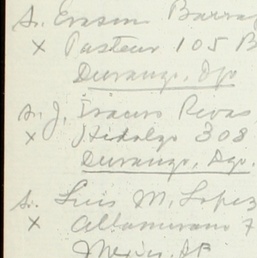 Sr. Erasmo Barra
x Pasteur 105 B
Durango, Dgo
Sr. J. Isauro Rivas
x Hidalgo 308
Durango, Dgo.
Sr. Luis M. Lopez
x Altamirano 7
Mexico, DF